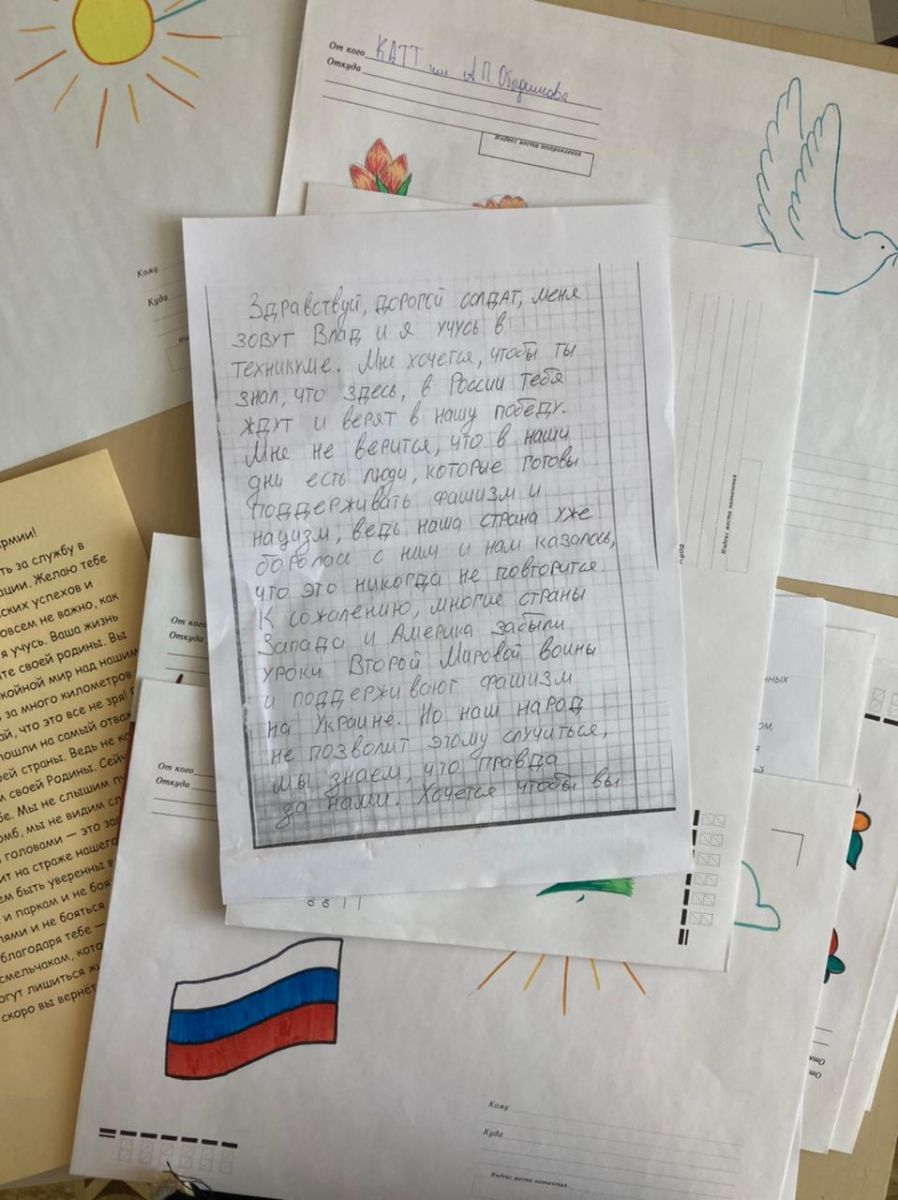 От кого КАТТ им А П Обыдинова
Откуда
Индекс места отправления
Кому
Куда
Здравствуй, дорогой солдат, меня
зовут Влад и я учусь в
техникуме. Мне хочется, чтобы ты
знал, что здесь, в России тебя
ждут и верят в нашу победу.
Мне не верится, что в наши
дни есть люди, которые готовы
поддерживать фашизм и
нацизм, ведь наша страна уже
боролась с ним и нам казалось,
что это никогда не повторится.
К сожалению, многие страны
Запада и Америка забыли
уроки Второй Мировой войны
и поддерживают фашизм
на Украине. Но наш народ
не позволит этому случиться,
мы знаем, что правда
за нами. Хочется чтобы вы
Индекс места назначения
Куда
армии!
ть за службу в
ации. Желаю тебе
ских успехов и
овсем не важно, как
я учусь. Ваша жизнь
ите своей родины. Вы
окойной мир над нашим
ь за много километров
ай, что это все не зря!
пошли на самый отваж
оей страны. Ведь не ко
м своей Родины. Сейч
бе. Мы не слышим пу
омб, мы не видим сл
и головами — это за
ит на страже нашего
ем быть уверенны в
и паркам и не боя
лями и не бояться
благодаря тебе —
смельчакам, кото
огут лишиться ж
скоро вы вернёт
От кого
Откуда
нных
ом,
От кого
Откуда
Кому
Куда
Индекс места назначения